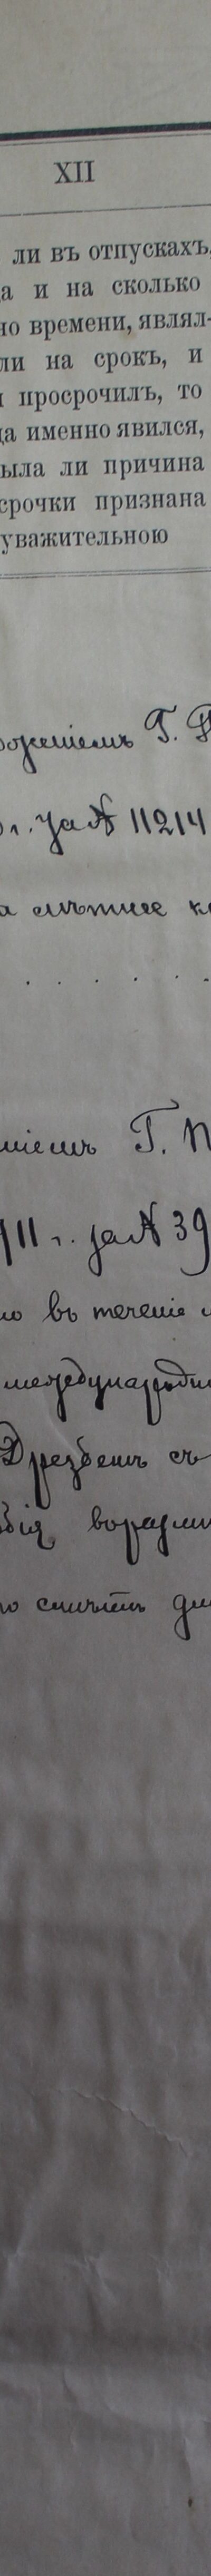 XII
ли въ отпускахъ,
а и на сколько
но времени, являл-
ли на срокъ, и
и просрочилъ, то
да именно явился,
ыла ли причина
срочки признана
уважительною
оженіемъ Г.
г. за № 11214
а лѣтнее к
. . . . .
ніемъ Г.
911 г. за № 39
ло въ теченіе
международн
Дрезденъ съ
обія